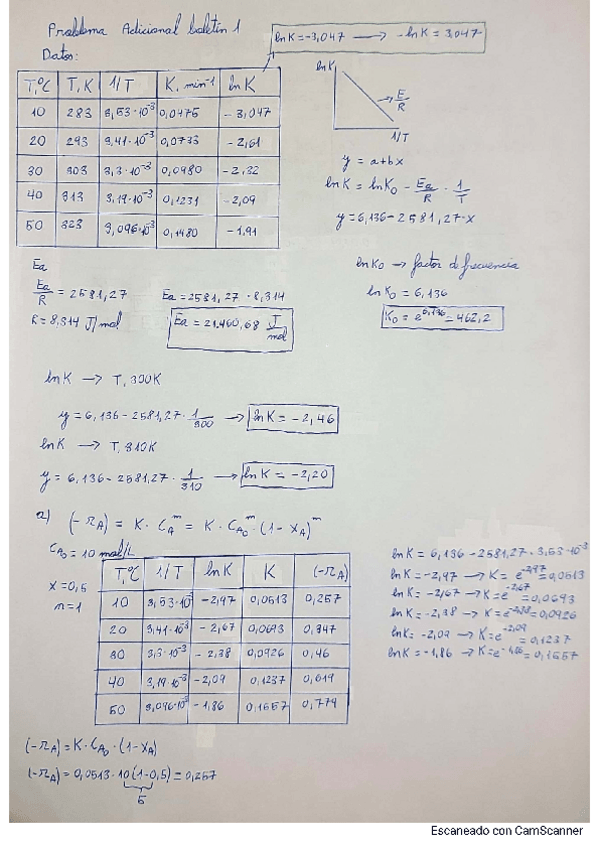 Problema Adicional boletín 1
lnK=-3,047 → -lnK = 3,047
Datos:
T,ºC T,K 1/T K, min⁻¹ lnK
10 283 3,53·10⁻³ 0,0475 -3,047
20 293 3,41·10⁻³ 0,0733 -2,61
30 303 3,3·10⁻³ 0,0980 -2,32
40 313 3,19·10⁻³ 0,1231 -2,09
50 323 3,096·10⁻³ 0,1480 -1,91
lnK
E/R
1/T
y = a+bx
lnK = lnK₀ - Ea/R · 1/T
y=6,136-2581,27·x
Ea
Ea/R = 2581,27
Ea=2581,27·8,314
R=8,314 J/mol
Ea=21.460,68 J/mol
lnK₀ → factor de frecuencia
lnK₀ = 6,136
K₀ = e^6,136 = 462,2
lnK → T, 300K
y = 6,136-2581,27·1/300 → lnK = -2,46
lnK → T, 310K
y = 6,136-2581,27·1/310 → lnK = -2,20
2) (-rA) = K·C_A^m = K·C_A₀^m·(1-X_A)^m
C_A₀ = 10 mol/L
x=0,5
n=1
T,ºC 1/T lnK K (-rA)
10 3,53·10⁻³ -2,97 0,0513 0,257
20 3,41·10⁻³ -2,67 0,0693 0,347
30 3,3·10⁻³ -2,38 0,0926 0,46
40 3,19·10⁻³ -2,09 0,1237 0,619
50 3,096·10⁻³ -1,86 0,1557 0,779
lnK = 6,136-2581,27·3,53·10⁻³
lnK=-2,97 → K= e^-2,97 = 0,0513
lnK=-2,67 → K=e^-2,67 = 0,0693
lnK=-2,38 → K=e^-2,38 = 0,0926
lnK=-2,09 → K=e^-2,09 = 0,1237
lnK=-1,86 → K=e^-1,86 = 0,1557
(-rA)=K·C_A₀·(1-X_A)
(-rA)=0,0513·10(1-0,5)=0,257
5
Escaneado con CamScanner